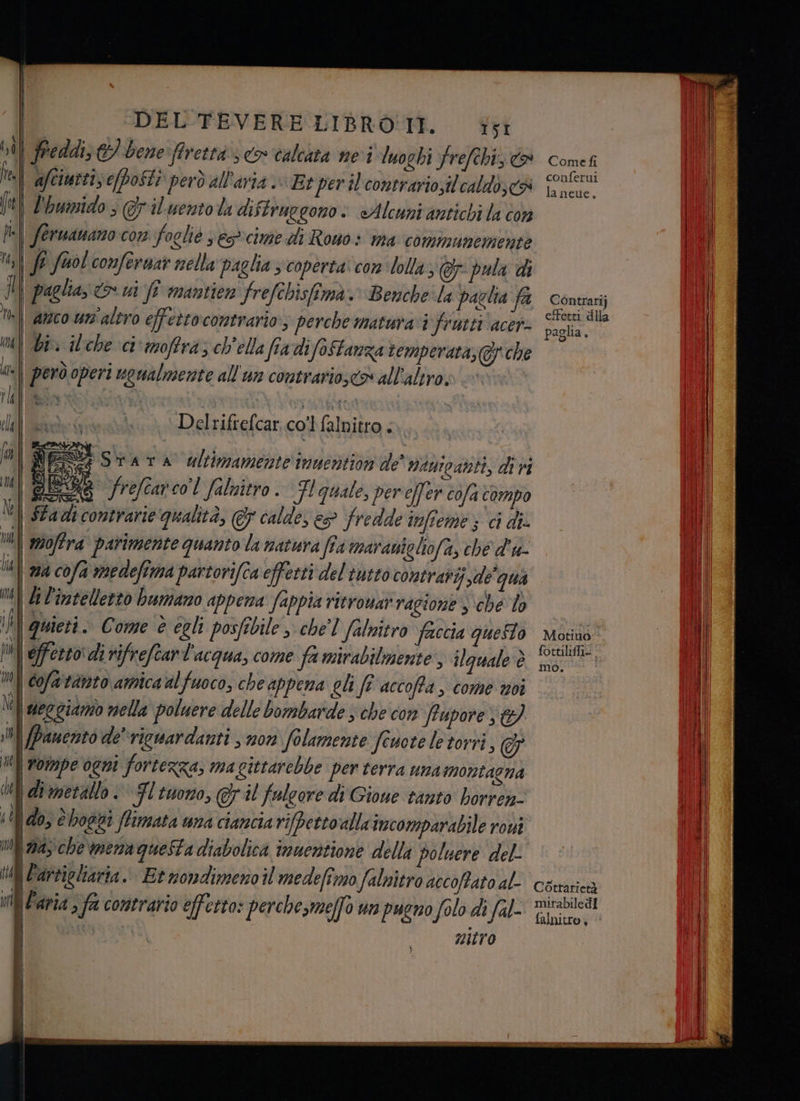 DEL TEVERE LIBRO II. 151
freddi, & bene stretta, & calcata ne i luoghi freschi, &
asciutti, esposti però all'aria. Et per il contrario, il caldo, &
l'humido, & il uento la distruggono. Alcuni antichi la con
seruauano con foglie, & cime di Rouo: ma communemente
si suol conseruar nella paglia, coperta con lolla, & pula di
paglia, & ui si mantien freschissima. Benche la paglia fa
anco un'altro effetto contrario, perche matura i frutti acer-
bi. il che ci mostra, ch'ella sia di sostanza temperata, & che
però operi ugualmente all'un contrario, & all'altro.
Del rifrescar co'l salnitro.
STATA ultimamente inuention de' nauiganti, di ri
frescar co'l salnitro. Il quale, per esser cosa compo
sta di contrarie qualità, & calde, & fredde insieme; ci di-
mostra parimente quanto la natura sia marauigliosa, che d'u-
na cosa medesima partorisca effetti del tutto contrarij, de' qua
li l'intelletto humano appena sappia ritrouar ragione, che lo
quieti. Come è egli possibile, che'l salnitro faccia questo
effetto di rifrescar l'acqua, come fa mirabilmente, ilquale è
cosa tanto amica al fuoco, che appena gli si accosta, come noi
ueggiamo nella poluere delle bombarde, che con stupore, &
spauento de' riguardanti, non solamente scuote le torri, &
rompe ogni fortezza, ma gittarebbe per terra una montagna
di metallo. Il tuono, & il fulgore di Gioue tanto horren-
do, è hoggi stimata una ciancia rispetto alla incomparabile roui
na, che mena questa diabolica inuentione della poluere del-
l'artigliaria. Et nondimeno il medesimo salnitro accostato al-
l'aria, fa contrario effetto: perche, messo un pugno solo di sal-
nitro
Come si
conserui
la neue.
Contrarij
effetti dlla
paglia.
Motiuo
sottilissi-
mo.
Cōtrarietà
mirabile dl
salnitro.